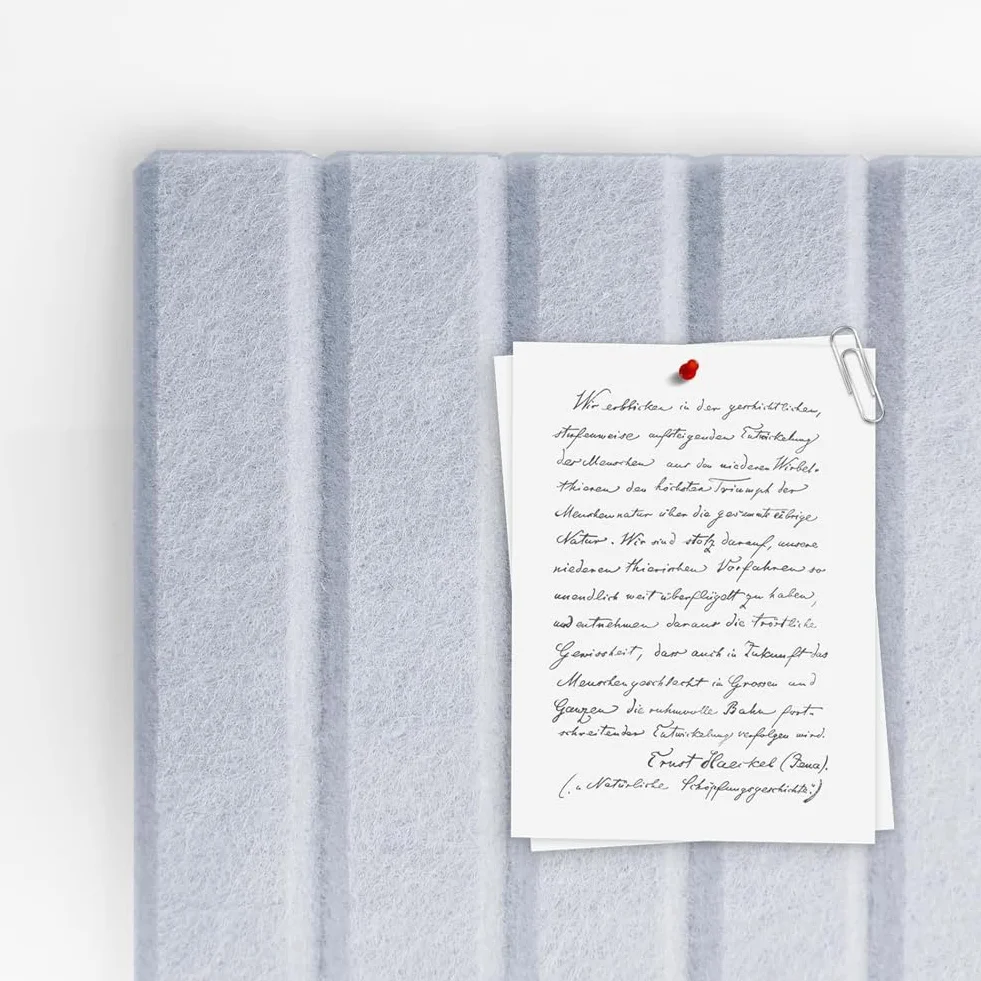 Wir erblicken in der geschichtlichen,
stufenweise aufsteigenden Entwickelung
der Menschen aus den niederen Wirbel-
thieren den höchsten Triumph der
Menschennatur über die gesammte übrige
Natur. Wir sind stolz darauf, unsere
niederen thierischen Vorfahren so
unendlich weit überflügelt zu haben,
und entnehmen daraus die tröstliche
Gewissheit, dass auch in Zukunft das
Menschengeschlecht im Grossen und
Ganzen die ruhmvolle Bahn fort-
schreitender Entwickelung verfolgen wird.
Ernst Haeckel (Jena).
(„Natürliche Schöpfungsgeschichte“)